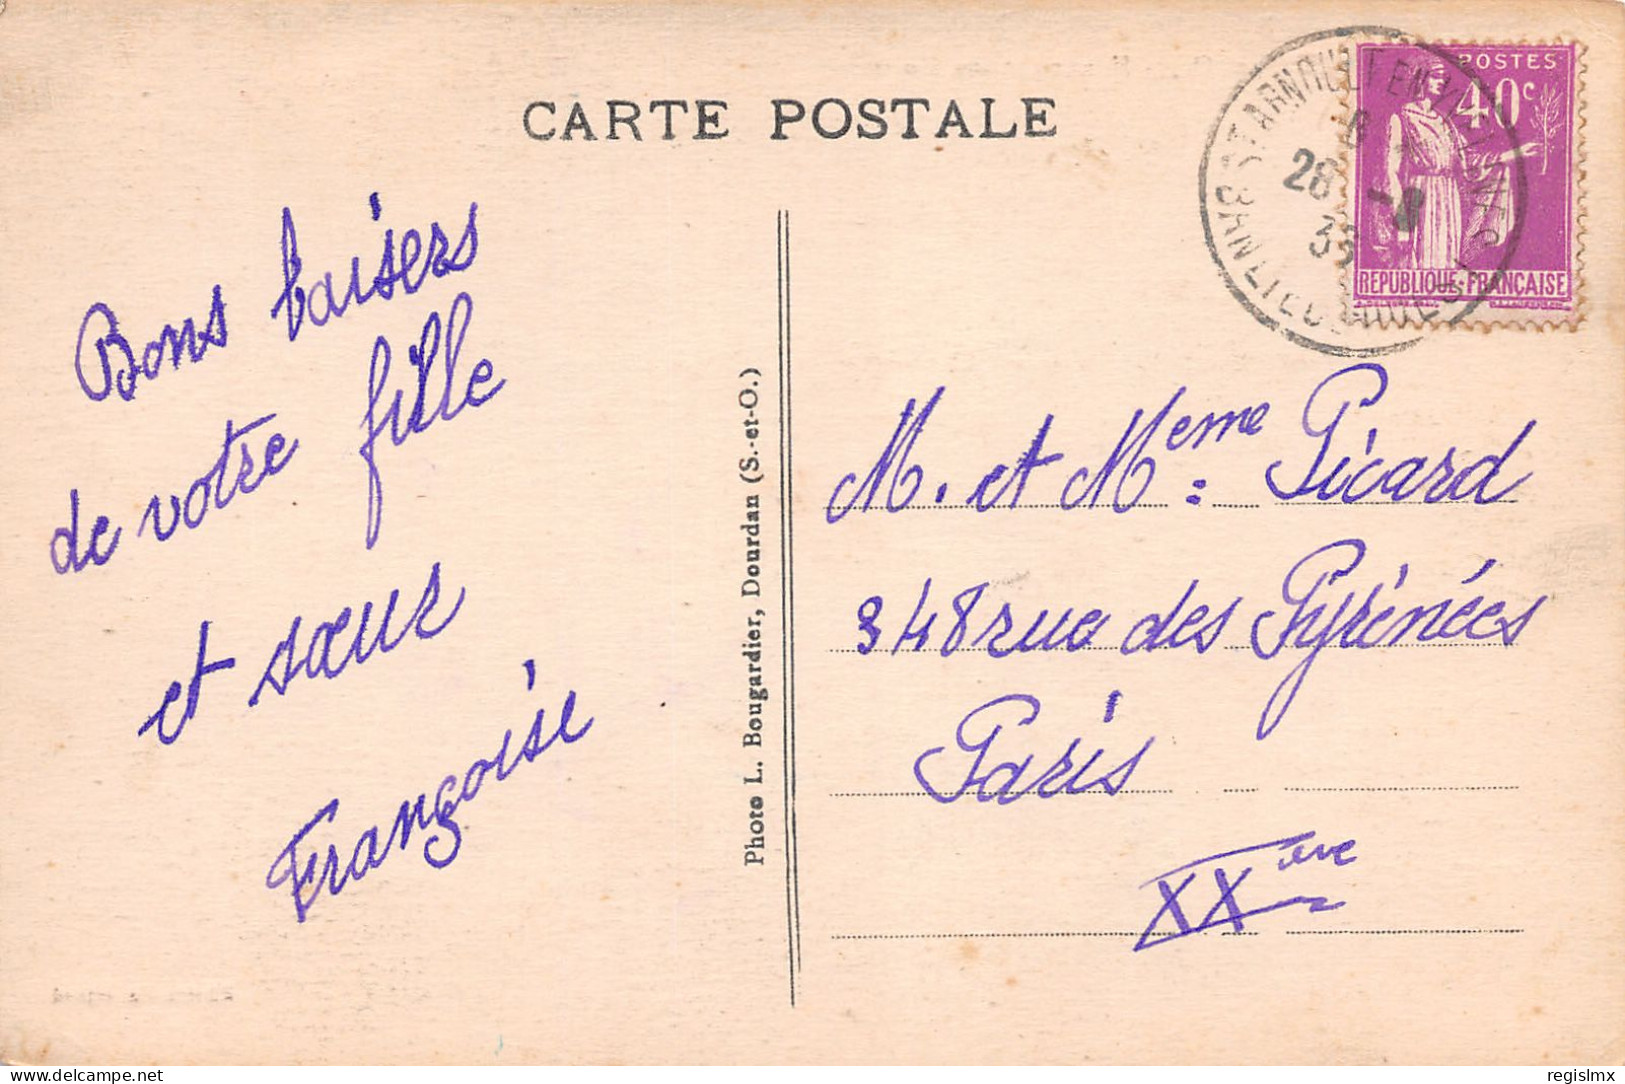 CARTE POSTALE
POSTES
40c
REPUBLIQUE-FRANÇAISE
28
Bons baisers
de votre fille
et sœur
Françoise
Photo L. Bougardier, Dourdan (S.-et-O.)
M. et Meme = Picard
348 rue des Pyrénées
Paris
XXème
delcampe.net
regislmx